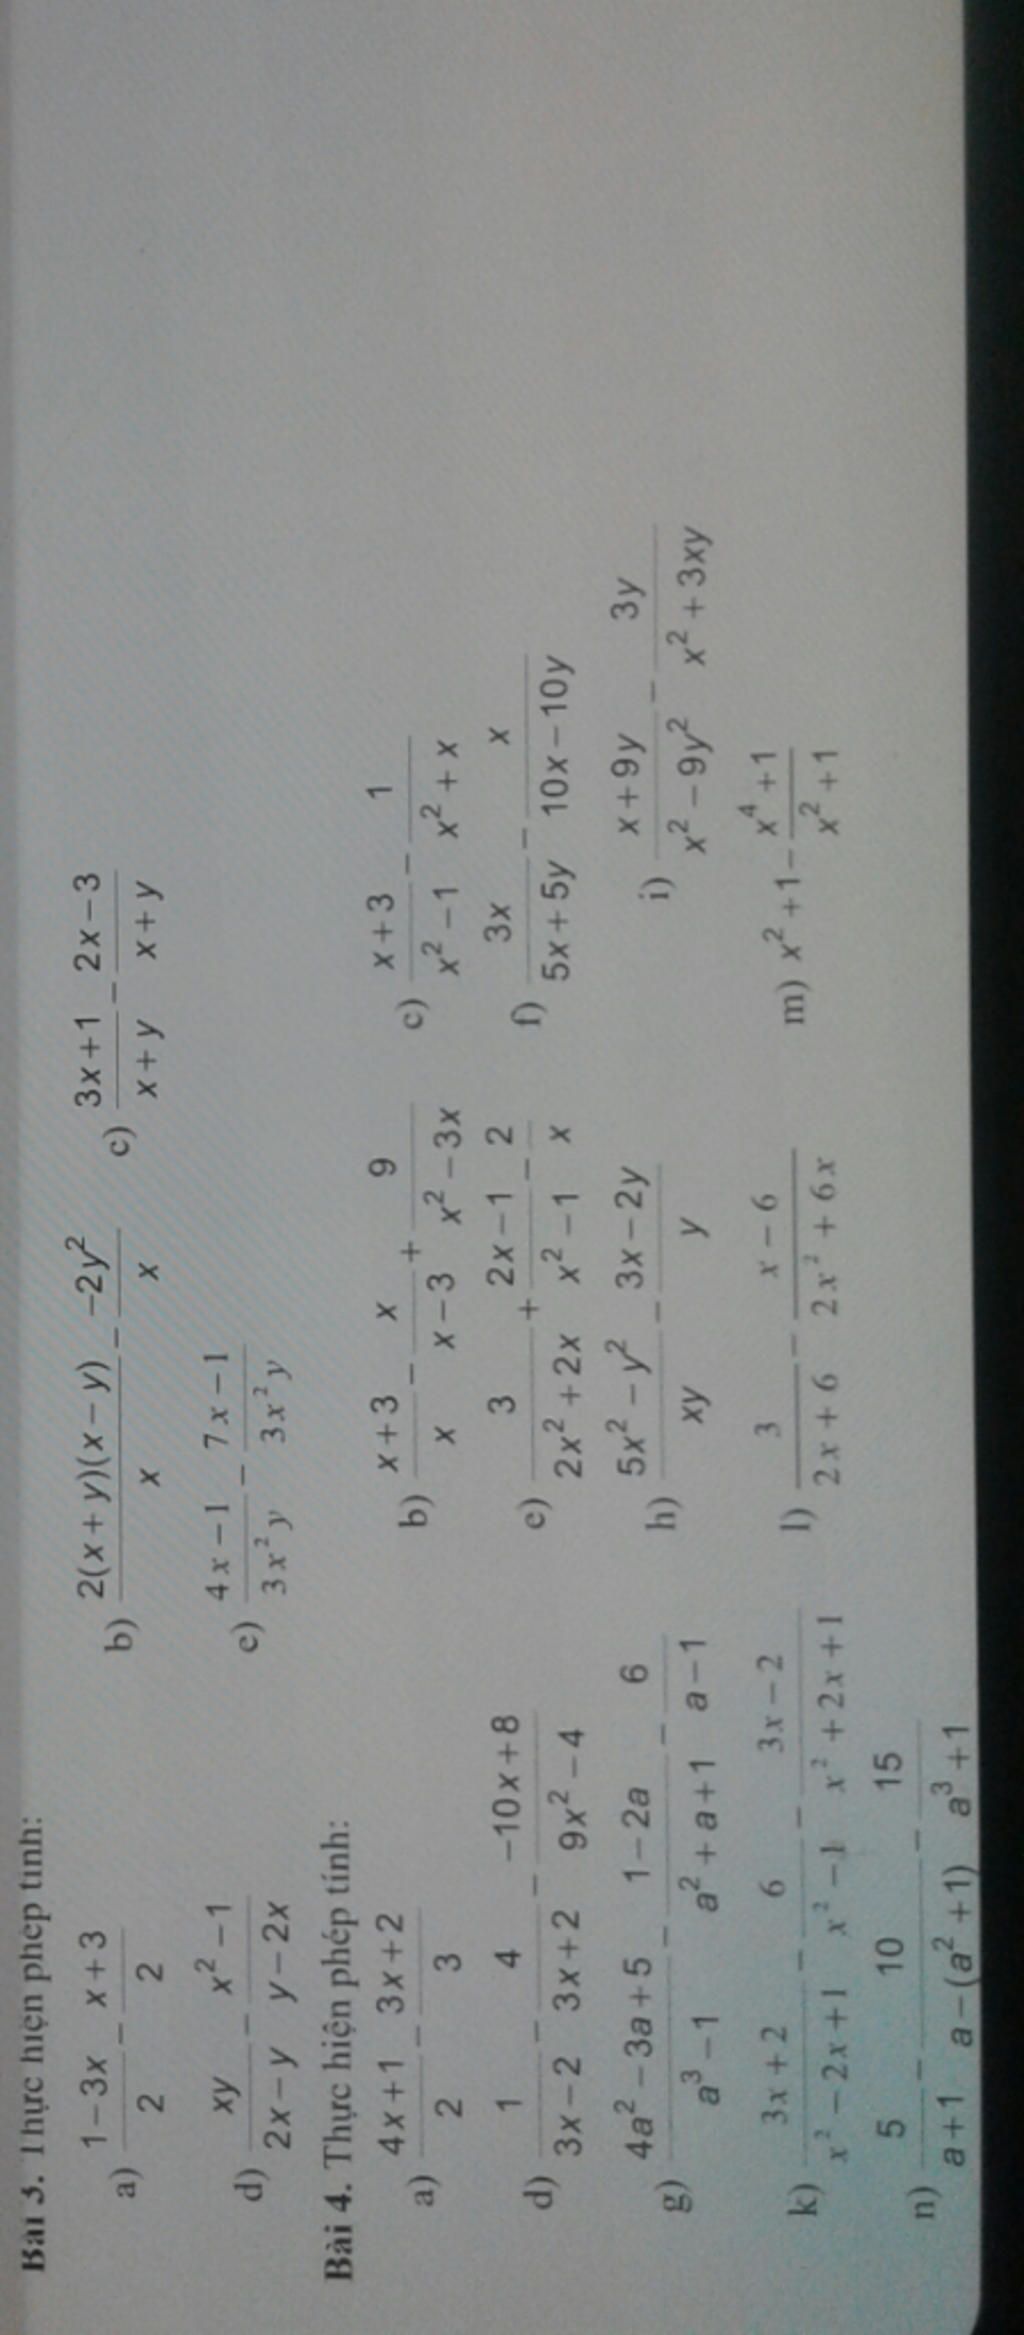 Bài 3. Thực hiện phép tính:
a) \frac{1-3x}{2} - \frac{x+3}{2} b) \frac{2(x+y)(x-y)}{x} - \frac{-2y^2}{x} c) \frac{3x+1}{x+y} - \frac{2x-3}{x+y}
d) \frac{xy}{2x-y} - \frac{x^2-1}{y-2x} e) \frac{4x-1}{3x^2y} - \frac{7x-1}{3x^2y}
Bài 4. Thực hiện phép tính:
a) \frac{4x+1}{2} - \frac{3x+2}{3} b) \frac{x+3}{x} - \frac{x}{x-3} + \frac{9}{x^2-3x} c) \frac{x+3}{x^2-1} - \frac{1}{x^2+x}
d) \frac{1}{3x-2} - \frac{4}{3x+2} - \frac{-10x+8}{9x^2-4} e) \frac{3}{2x^2+2x} + \frac{2x-1}{x^2-1} - \frac{2}{x} f) \frac{3x}{5x+5y} - \frac{x}{10x-10y}
g) \frac{4a^2-3a+5}{a^3-1} - \frac{1-2a}{a^2+a+1} - \frac{6}{a-1} h) \frac{5x^2-y^2}{xy} - \frac{3x-2y}{y} i) \frac{x+9y}{x^2-9y^2} - \frac{3y}{x^2+3xy}
k) \frac{3x+2}{x^2-2x+1} - \frac{6}{x^2-1} - \frac{3x-2}{x^2+2x+1} l) \frac{3}{2x+6} - \frac{x-6}{2x^2+6x} m) x^2+1-\frac{x^4+1}{x^2+1}
n) \frac{5}{a+1} - \frac{10}{a-(a^2+1)} - \frac{15}{a^3+1}